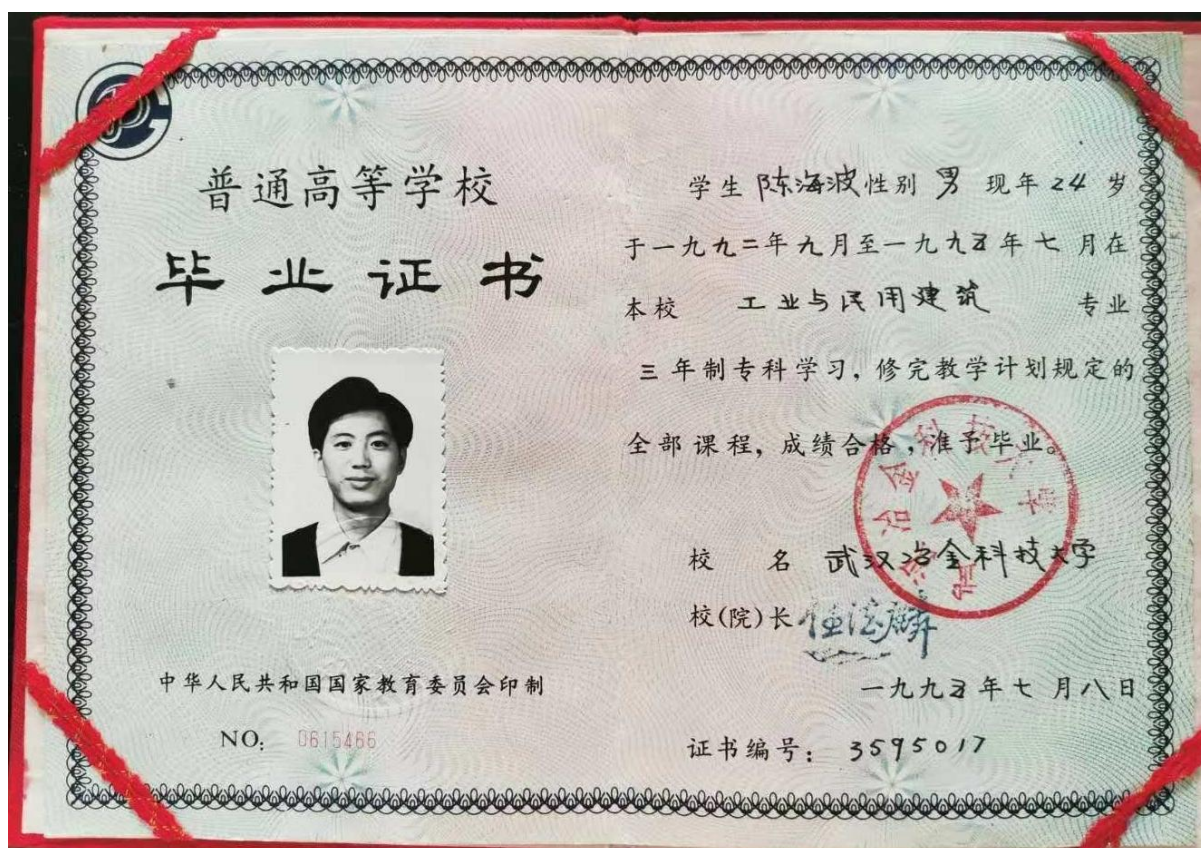 普通高等学校
毕业证书
中华人民共和国国家教育委员会印制
NO: 0615466
学生 陈海波 性别 男 现年 24 岁
于一九九二年九月至一九九五年七月在
本校 工业与民用建筑 专业
三年制专科学习，修完教学计划规定的
全部课程，成绩合格，准予毕业。
武汉冶金科技大学
校 名 武汉冶金科技大学
校(院)长
一九九五年七月八日
证书编号： 3595017